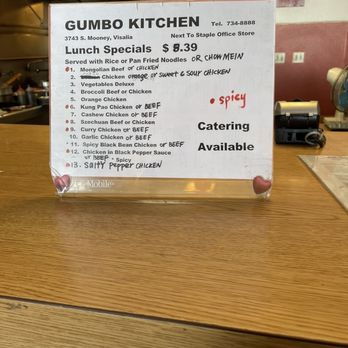 GUMBO KITCHEN Tel. 734-8888
3743 S. Mooney, Visalia Next To Staple Office Store
Lunch Specials $ 8.39
Served with Rice or Pan Fried Noodles OR, CHOW MEIN
1. Mongolian Beef or CHICKEN
2. Chicken orange or Sweet & SOUR CHICKEN
3. Vegetables Deluxe
4. Broccoli Beef or Chicken
5. Orange Chicken
6. Kung Pao Chicken or BEEF
7. Cashew Chicken or BEEF
8. Szechuan Beef or Chicken
9. Curry Chicken or BEEF
10. Garlic Chicken or BEEF
11. Spicy Black Bean Chicken or BEEF
12. Chicken in Black Pepper Sauce
or BEEF * Spicy
13. Salty Pepper CHICKEN
• spicy
Catering
Available
Mobile